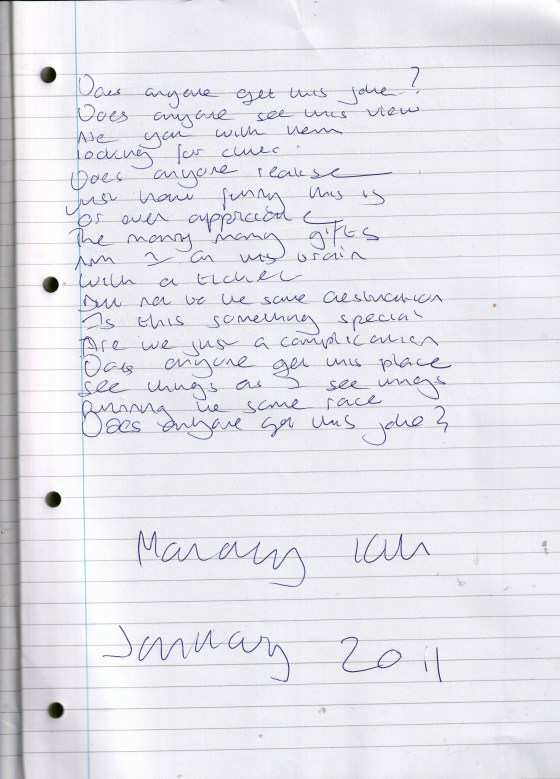 Does anyone get this joke?
Does anyone see this view
Are you with them
looking for clues
Does anyone realise
Just how funny this is
Or even appreciate
The many many gifts
Am I on this train
With a ticket
But not to the same destination
Is this something special
Are we just a complication
Does anyone get this place
See things as I see things
Running the same race
Does anyone get this joke?
Monday 10th
January 2011